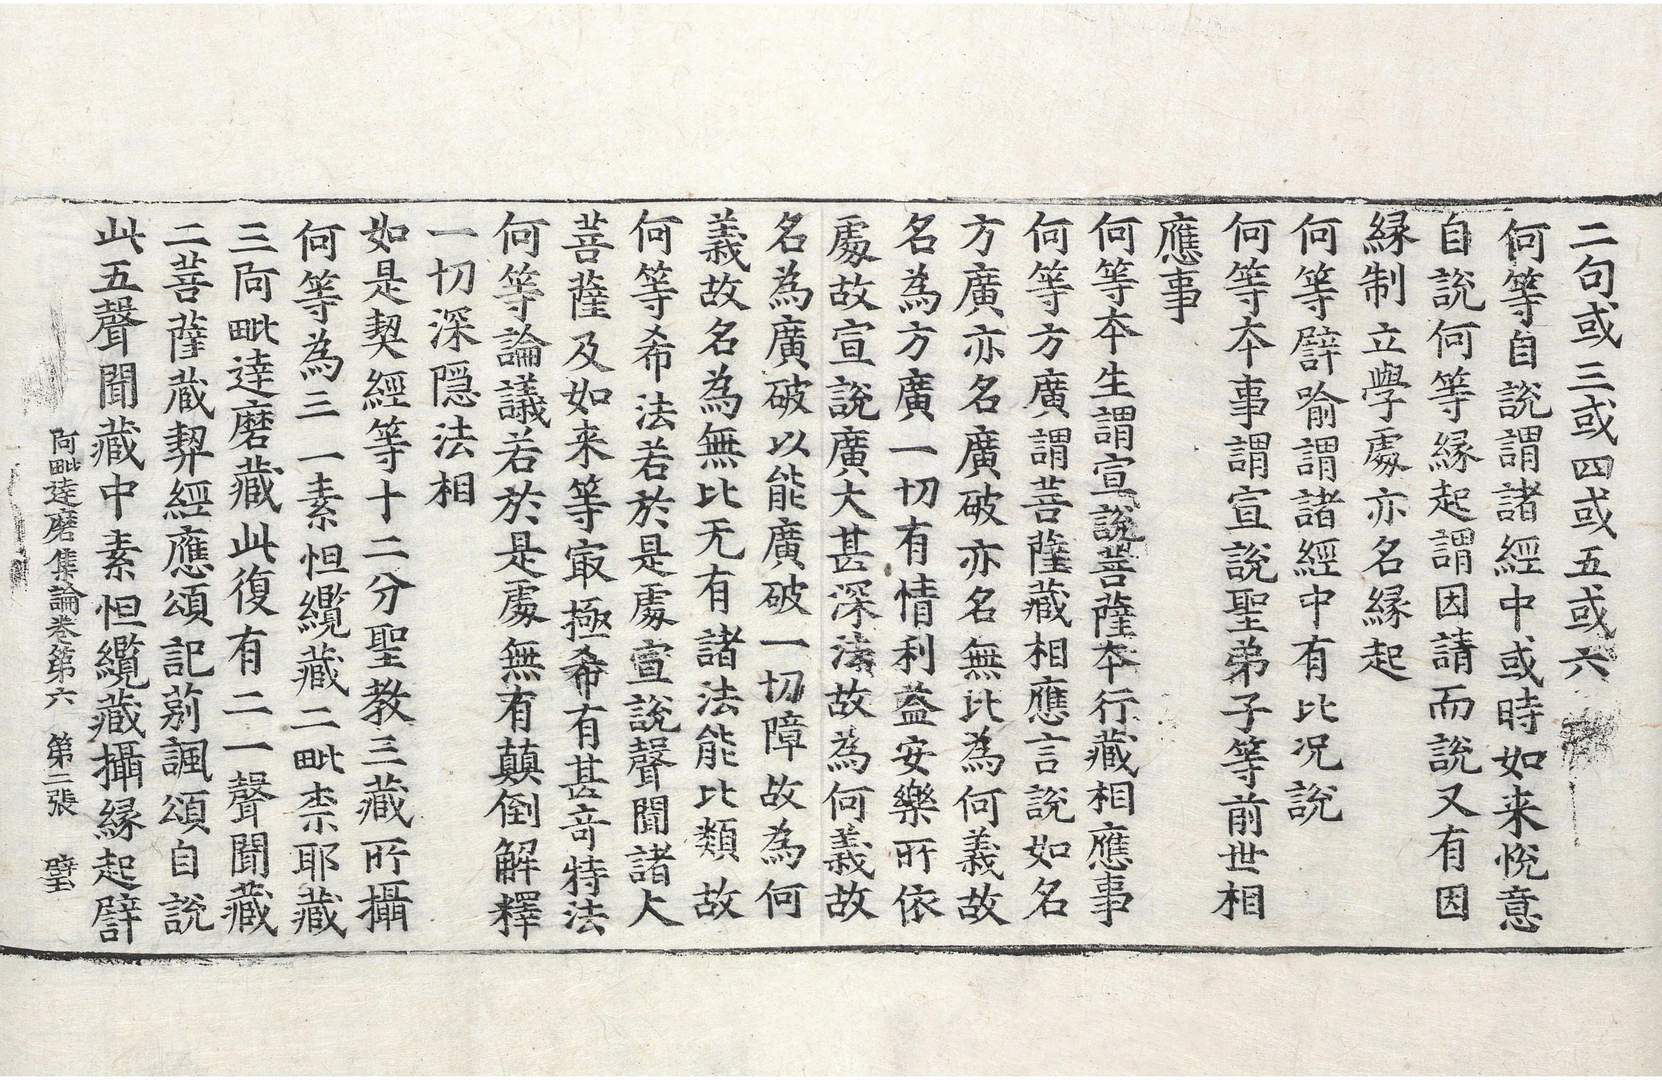 二句或三或四或五或六
何等自說謂諸經中或時如来悅意
自說何等縁起謂因請而說又有因
縁制立學處亦名縁起
何等譬喻謂諸經中有比况說
何等夲事謂宣說聖弟子等前世相
應事
何等夲生謂宣說菩薩夲行藏相應事
何等方廣謂菩薩藏相應言說如名
方廣亦名廣破亦名無比為何義故
名為方廣一切有情利益安樂所依
處故宣說廣大甚深法故為何義故
名為廣破以能廣破一切障故為何
義故名為無比无有諸法能比類故
何等希法若於是處宣說聲聞諸大
菩薩及如来等宼極希有甚竒特法
何等論議若於是處無有顛倒解釋
一切深隱法相
如是契經等十二分聖教三藏所攝
何等為三一素怛纜藏二毗柰耶藏
三阿毗達磨藏此復有二一聲聞藏
二菩薩藏契經應頌記莂諷頌自說
此五聲聞藏中素怛纜藏攝縁起譬
阿毗達磨集論卷第六　第三張　璧